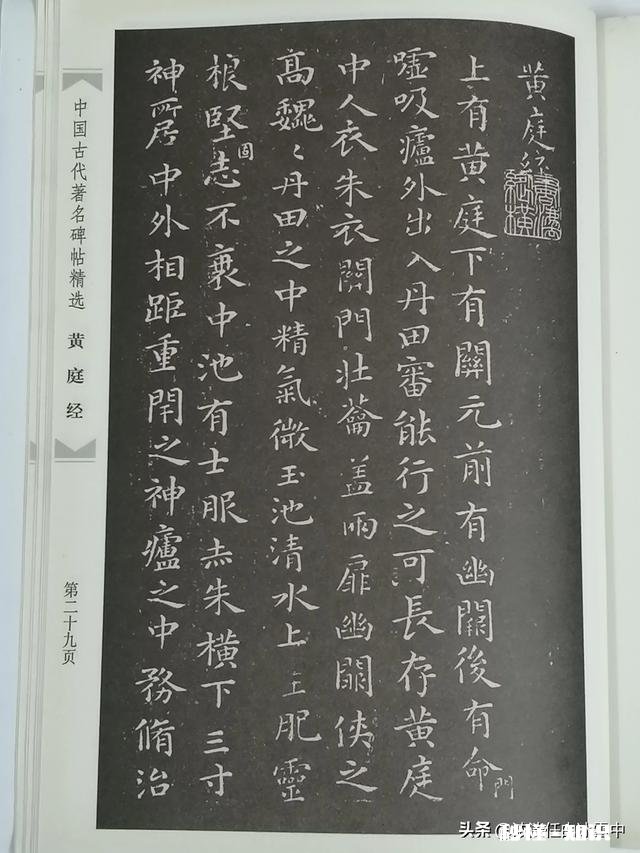 黄庭經
上有黄庭下有關元前有幽闕後有命門
噓吸廬外出入丹田審能行之可長存黄庭
中人衣朱衣關門壯蘥盖兩扉幽闕俠之
高魏〻丹田之中精氣微玉池清水上生肥靈
根堅固志不衰中池有士服赤朱橫下三寸
神所居中外相距重閇之神廬之中務脩治
中国古代著名碑帖精选 黄庭经
第二十九页
头条